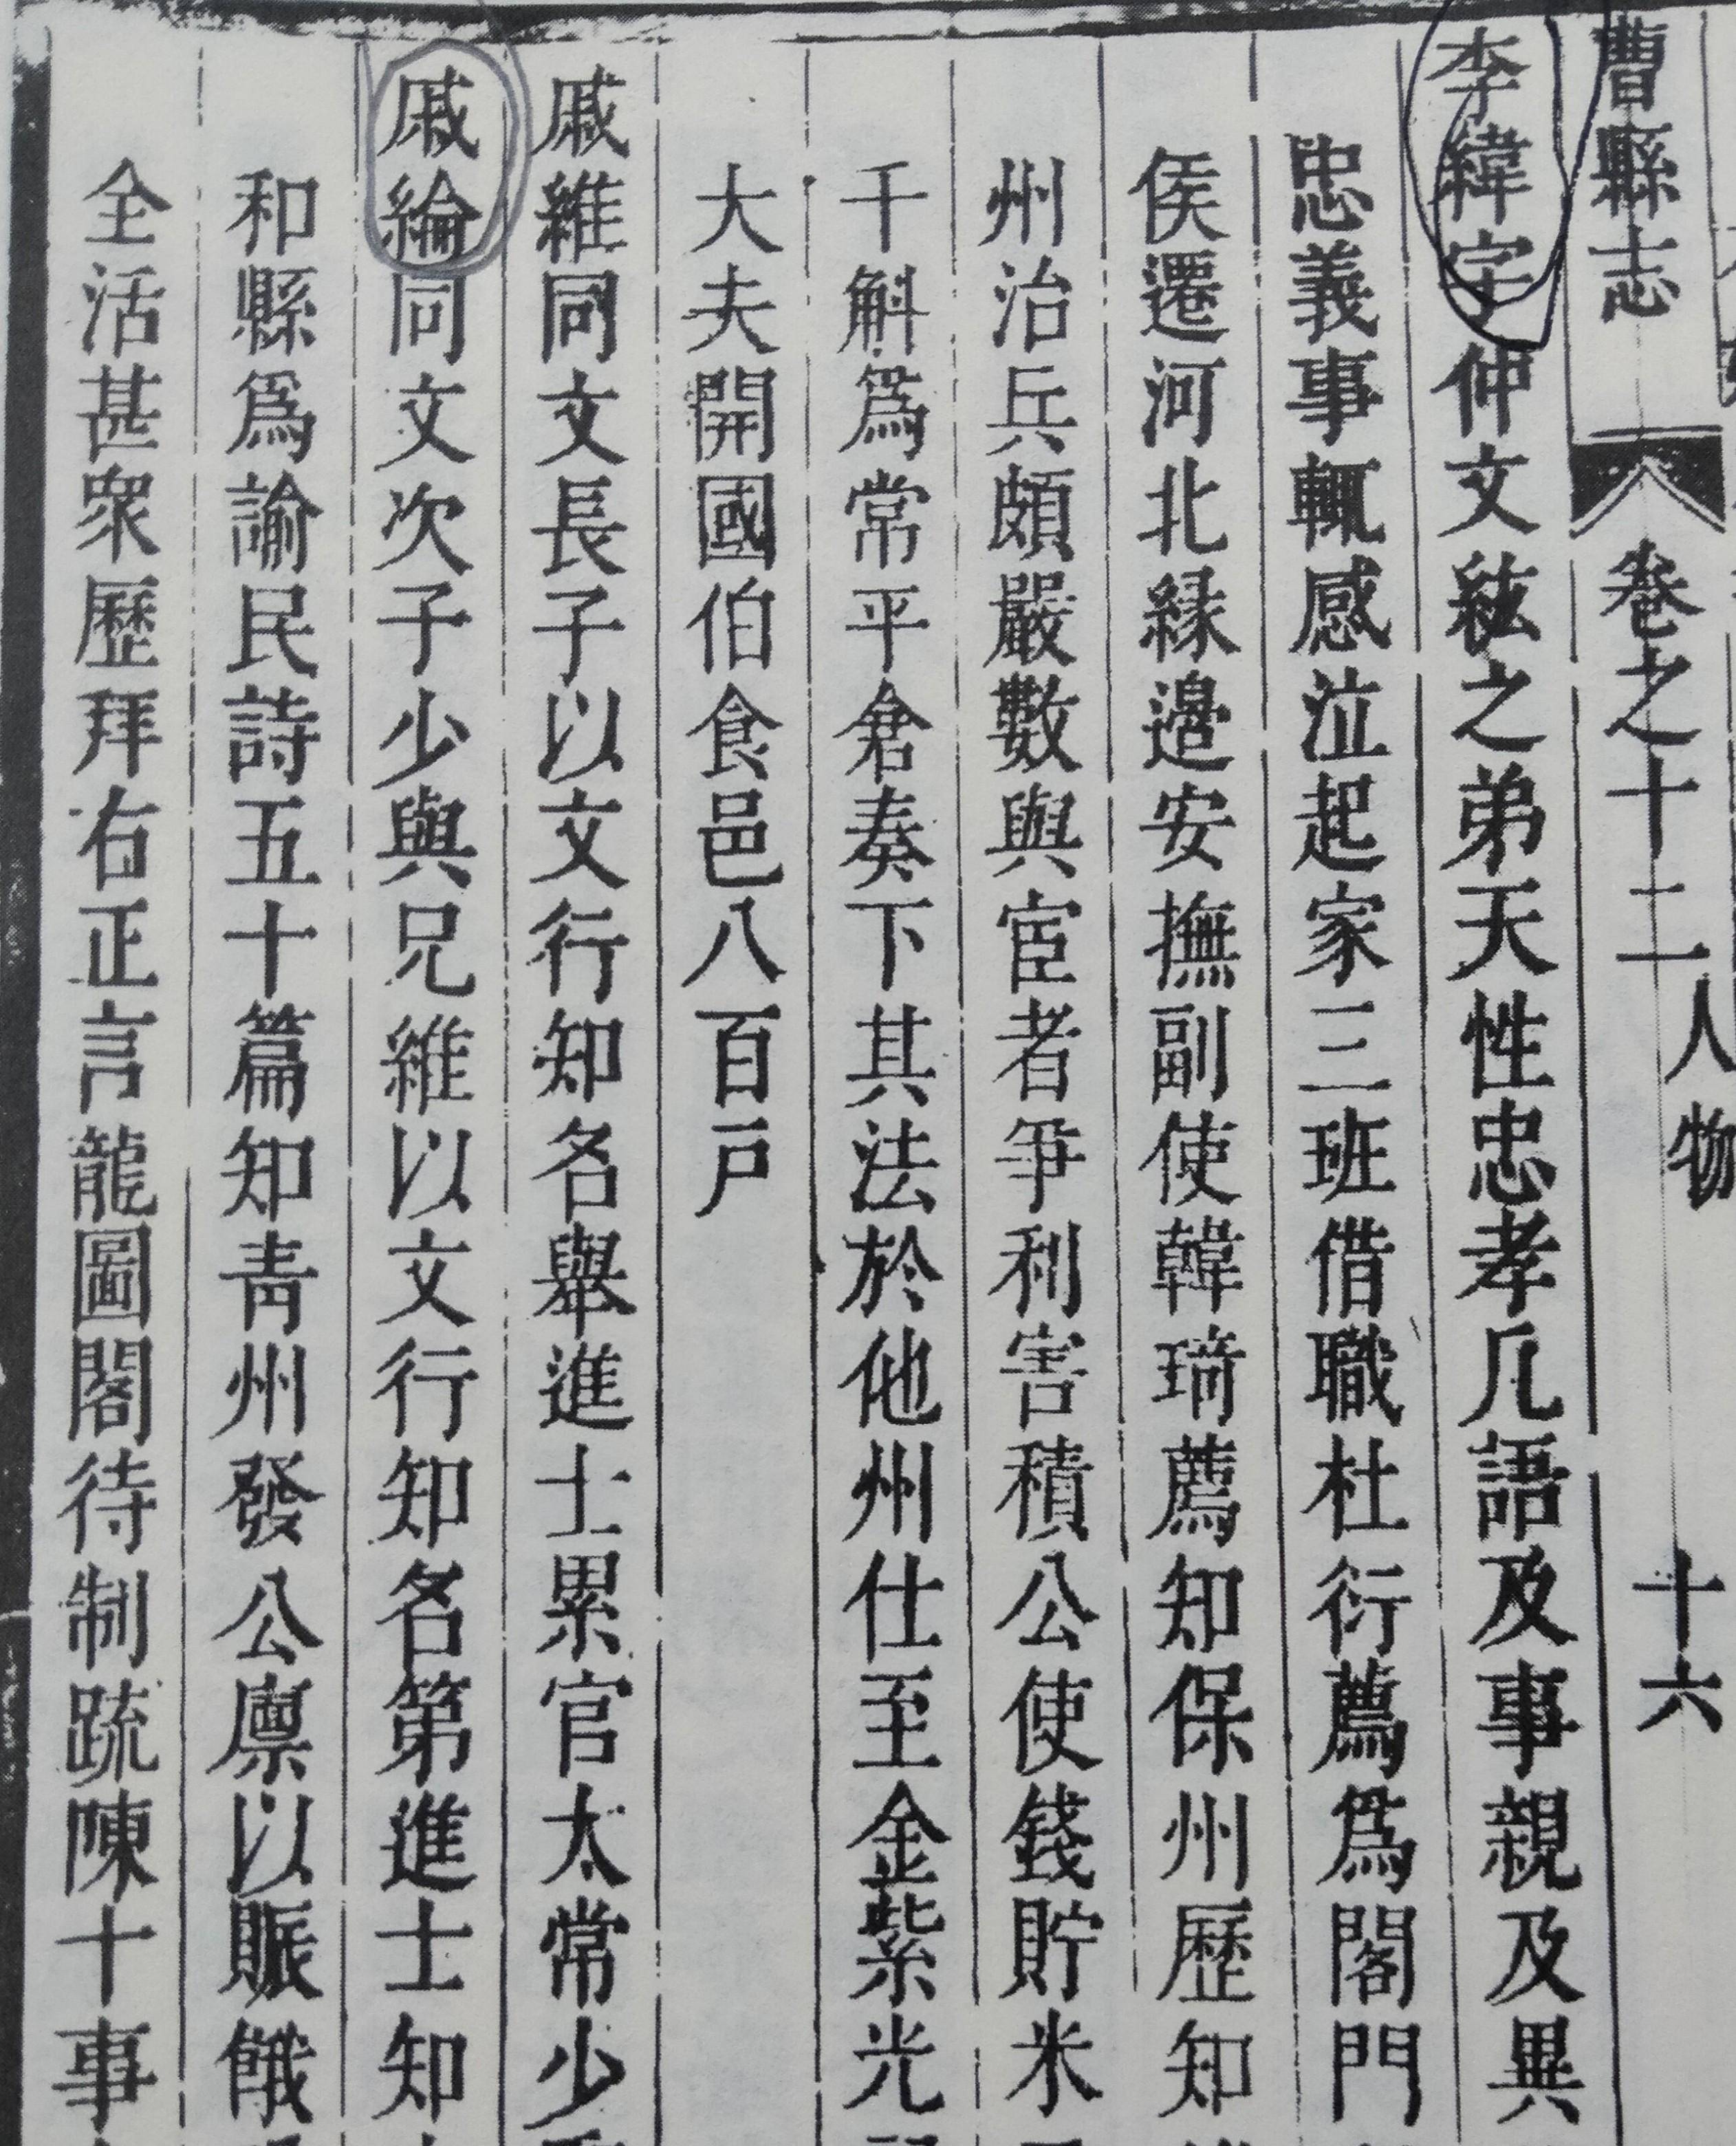 曹縣志 卷之十二 人物 十六
李緯字仲文紘之弟天性忠孝凡語及事親及異
忠義事輒感泣起家三班借職杜衍薦爲閤門
侯遷河北緣邊安撫副使韓琦薦知保州歷知
州治兵頗嚴數與宦者爭利害積公使錢貯米
千斛爲常平倉奏下其法於他州仕至金紫光
大夫開國伯食邑八百戸
戚維同文長子以文行知名舉進士累官太常少
戚綸同文次子少與兄維以文行知名第進士知
和縣爲諭民詩五十篇知青州發公廪以賑餓
全活甚衆歷拜右正言龍圖閣待制疏陳十事